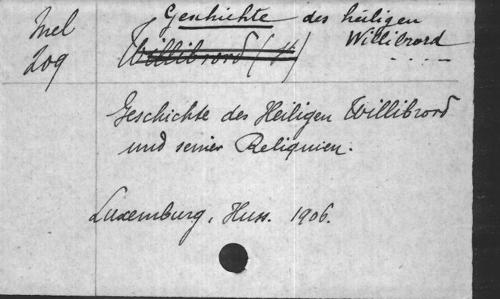 Mel
209
Geschichte des heiligen
Willibrord
Willibrord (H)
Geschichte des Heiligen Willibrord
und seiner Reliquien.
Luxemburg, Huss. 1906.